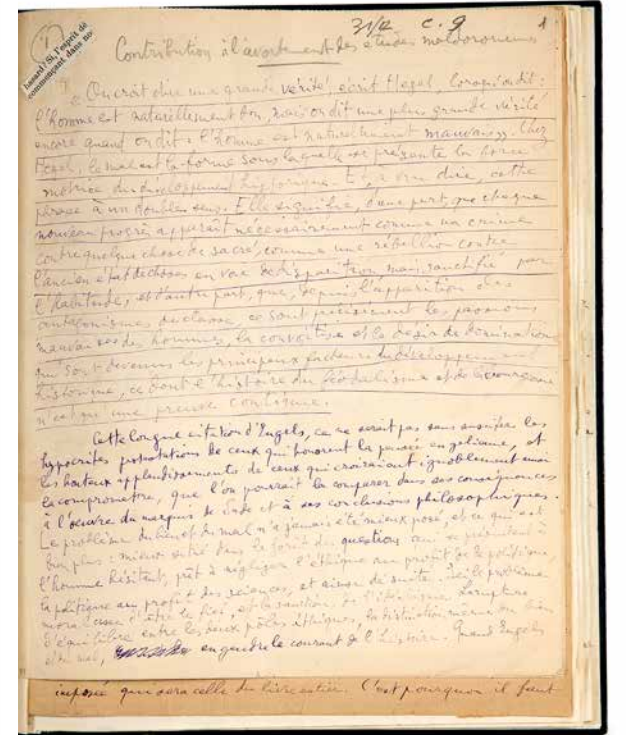 hasard! Si, l'esprit de
commençant dans no
31/12 c. 9 1
Contribution à l'avortement des études maldororiennes
« On croit dire une grande vérité, écrit Hegel, lorsqu'on dit :
l'homme est naturellement bon, mais on dit une plus grande vérité
encore quand on dit : l'homme est naturellement mauvais ». Chez
Hegel, le mal est la forme sous laquelle se présente la force
motrice du développement historique. Et, à vrai dire, cette
phrase a un double sens. Elle signifie, d'une part, que chaque
nouveau progrès apparaît nécessairement comme un crime
contre quelque chose de sacré, comme une rébellion contre
l'ancien état de choses en voie de disparition, mais sanctifié par
l'habitude, et d'autre part, que, depuis l'apparition des
antagonismes de classe, ce sont précisément les passions
mauvaises des hommes, la convoitise et le désir de domination
qui sont devenus les principaux facteurs du développement
historique, ce dont l'histoire du féodalisme et de la bourgeoisie
n'est qu'une preuve continue.
Cette longue citation d'Engels, ce ne serait pas sans susciter les
hypocrites protestations de ceux qui honorent la pensée engelienne, et
les honteux applaudissements de ceux qui croiraient ignoblement ainsi
la compromettre, que l'on pourrait la comparer dans ses conséquences
à l'œuvre du marquis de Sade et à ses conclusions philosophiques.
Le problème du bien et du mal n'a jamais été mieux posé, et ce qui est
bien plus : mieux situé dans la forêt des questions qui se présentent à
l'homme hésitant, prêt à négliger l'éthique au profit de la politique,
la politique au profit des sciences, et ainsi de suite. Ici le problème
moral cesse d'être le fief, et la sanction, de l'idéologie. La rupture
d'équilibre entre les deux pôles éthiques, la distinction même du bien
et du mal, engendre le courant de l'histoire. Quand Engels
imposée qui sera celle du livre entier. C'est pourquoi il faut